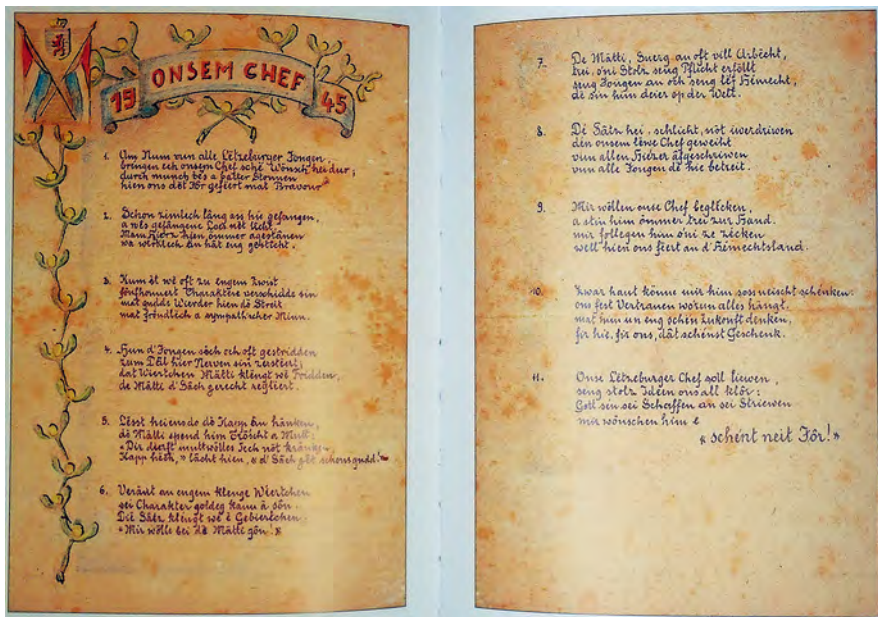 19 ONSEM CHEF 45
1. Am Num vun alle Lëtzeburger Jongen
bréngen ech onsem Chef sché Wönsch hei dur;
durch munch bés a batter Stonnen
hien ons dët Jor geféert mat Bravour
2. Schon zimlech lång ass hie gefangen,
a wés gefångene Los nët licht.
Mam Hierz hien ömmer agestånen
wa wirklech än håt eng gebticht.
3. Kum ët wé oft zu engem Zwist
fönfhonnert Charaktere verschidde sin
mat gudde Wierder hien dë Streit
mat fröndlech a sympath'scher Minn.
4. Hun d'Jongen sëch och oft gestridden
zum Däl hier Nerven sin zerstéert;
dat Wiertchen Mätti kléngt wé Fridden,
de Mätti d'Säch gerecht regléert.
5. Lésst heiensdo dë Kapp än hänken,
dë Mätti spend him Tröscht a Mutt:
"Dir dierft muttwölles Iech nët kränken
Kapp héch," lächt hien, "d'Säch gët schons gudd!"
6. Veräirt an engem klenge Wiertchen
sei Charakter goldeg kann ä sön.
Dië Säz kléngt wé e Gebiertchen
"Mir wölle bei de Mätti gön!"
7. De Mätti, Suerg an oft vill Arbécht,
trei, oni Stolz seng Pflicht erföllt
seng Jongen an och seng léf Hémecht,
dé sin him deier op der Welt.
8. Dé Sätz hei, schlicht, nöt iwerdriwen
den onsem léwe Chef geweiht
vun allen Hierzer äfgeschriwen
vun alle Jongen dé hie betreit.
9. Mir wöllen onse Chef beglécken,
a stin him ömmer trei zur Hand.
mir follegen him oni ze zécken
well hien ons féert an d'Hémechtsland.
10. Zwar haut könne mir him soss neischt schénken:
ons fest Vertrauen worun alles hängt,
mat him un eng schéin Zukonft denken,
fir hie, fir ons, dat schénst Geschenk.
11. Onse Lëtzeburger Chef soll liewen,
seng stolz Ideen ons all klor;
Gott sin sei Schaffen an sei Striewen
mir wönschen him e
"schént neit Jör!"